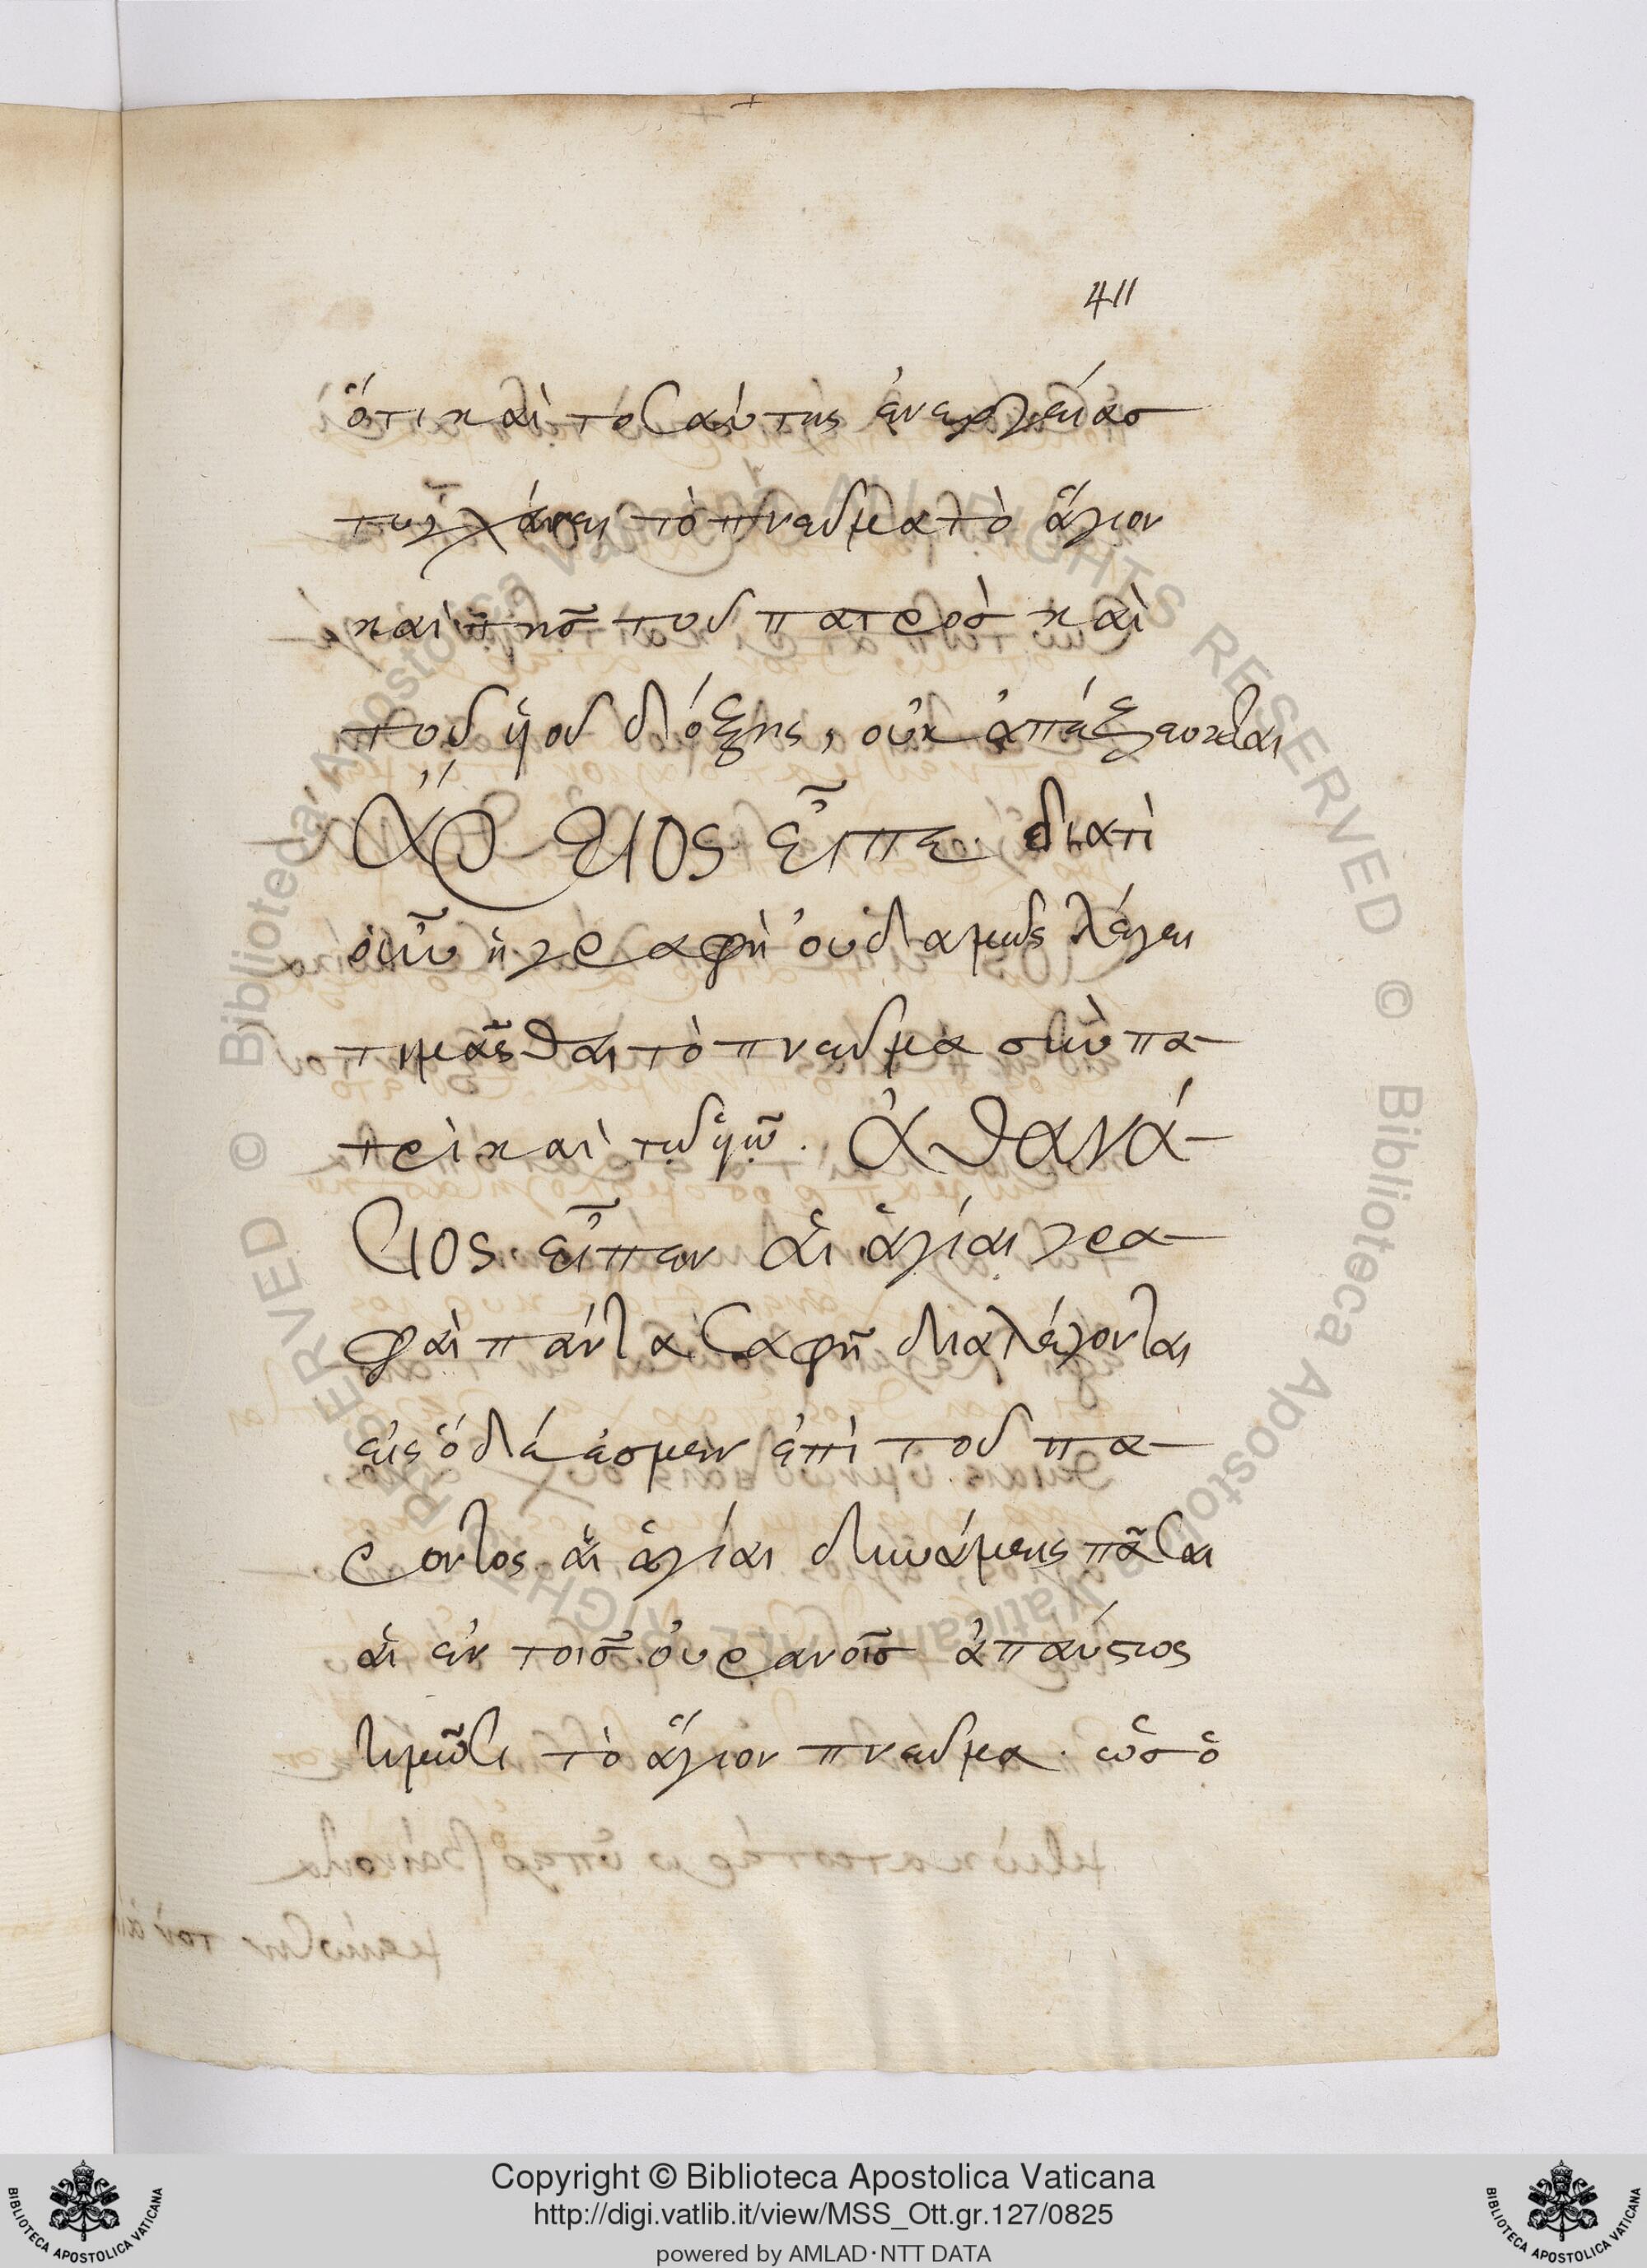 411
ὅτι καὶ τοσαύτης ἐνεργείασ
τυγχάνει τὸ πνεῦμα τὸ ἅγιον
καὶ τῆσ τοῦ πατρὸσ καὶ
τοῦ ὑιοῦ δόξης, οὐκ ἀπέξευκται
Ἄρειος εἶπε διατὶ
οὖν ἡ γραφὴ οὐδαμῶς λέγει
τιμᾶςθαι τὸ πνεῦμα σὺν πα-
τρὶ καὶ τῶ ὑιῶ. Ἀθανά-
σιος. εἶπεν ἁι ἁγίαι γρα-
φαὶ πάντα σαφῆ διαλέγονται
εἰς ὅ δέ ἐσμεν ἐπὶ τοῦ πα-
ρόντος. ἁι ἁγίαι δυνάμεις πᾶσαι
ἁι ἐν τοισ οὐρανοῖσ ἀπαύστως
τιμῶσι τὸ ἅγιον πνεῦμα. ὡσ ὁ
Copyright © Biblioteca Apostolica Vaticana
http://digi.vatlib.it/view/MSS_Ott.gr.127/0825
powered by AMLAD·NTT DATA
BIBLIOTECA APOSTOLICA VATICANA
BIBLIOTECA APOSTOLICA VATICANA